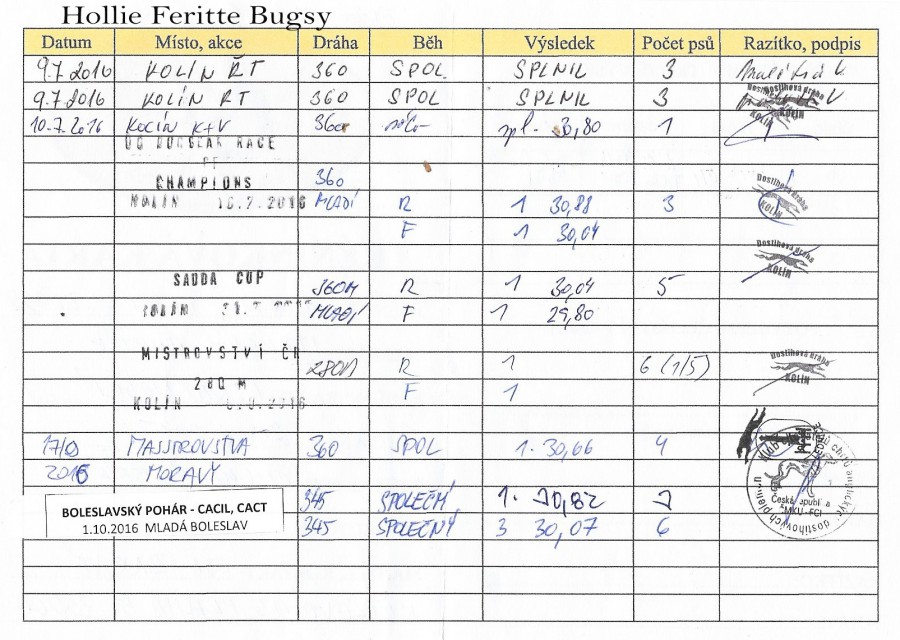 Hollie Feritte Bugsy
Datum Místo, akce Dráha Běh Výsledek Počet psů Razítko, podpis
9.7.2016 KOLÍN ŘT 360 SPOL. SPLNIL 3
9.7.2016 KOLÍN RT 360 SPOL SPLNIL 3
10.7.2016 KOLÍN K+V 360 sólo spl. 30,80 1
RACE
CHAMPIONS 360
KOLÍN 16.7.2016 MLADÍ R 1 30,88 3
F 1 30,04
Dostihová dráha
KOLÍN
SAUDA CUP 360M R 1 30,04 5
KOLÍN MLADÍ F 1 29,80
MISTROVSTVÍ ČR 280M R 1 6 (1/5)
280 M F 1
KOLÍN
Dostihová dráha
KOLÍN
MASSDROVSTVA 360 SPOL 1. 30,66 4
2016 MORAVY
BOLESLAVSKÝ POHÁR - CACIL, CACT 345 SPOLEČNÍ 1. 30,82 7
1.10.2016 MLADÁ BOLESLAV 345 SPOLEČNÝ 3 30,07 6
ČMKU - FCI